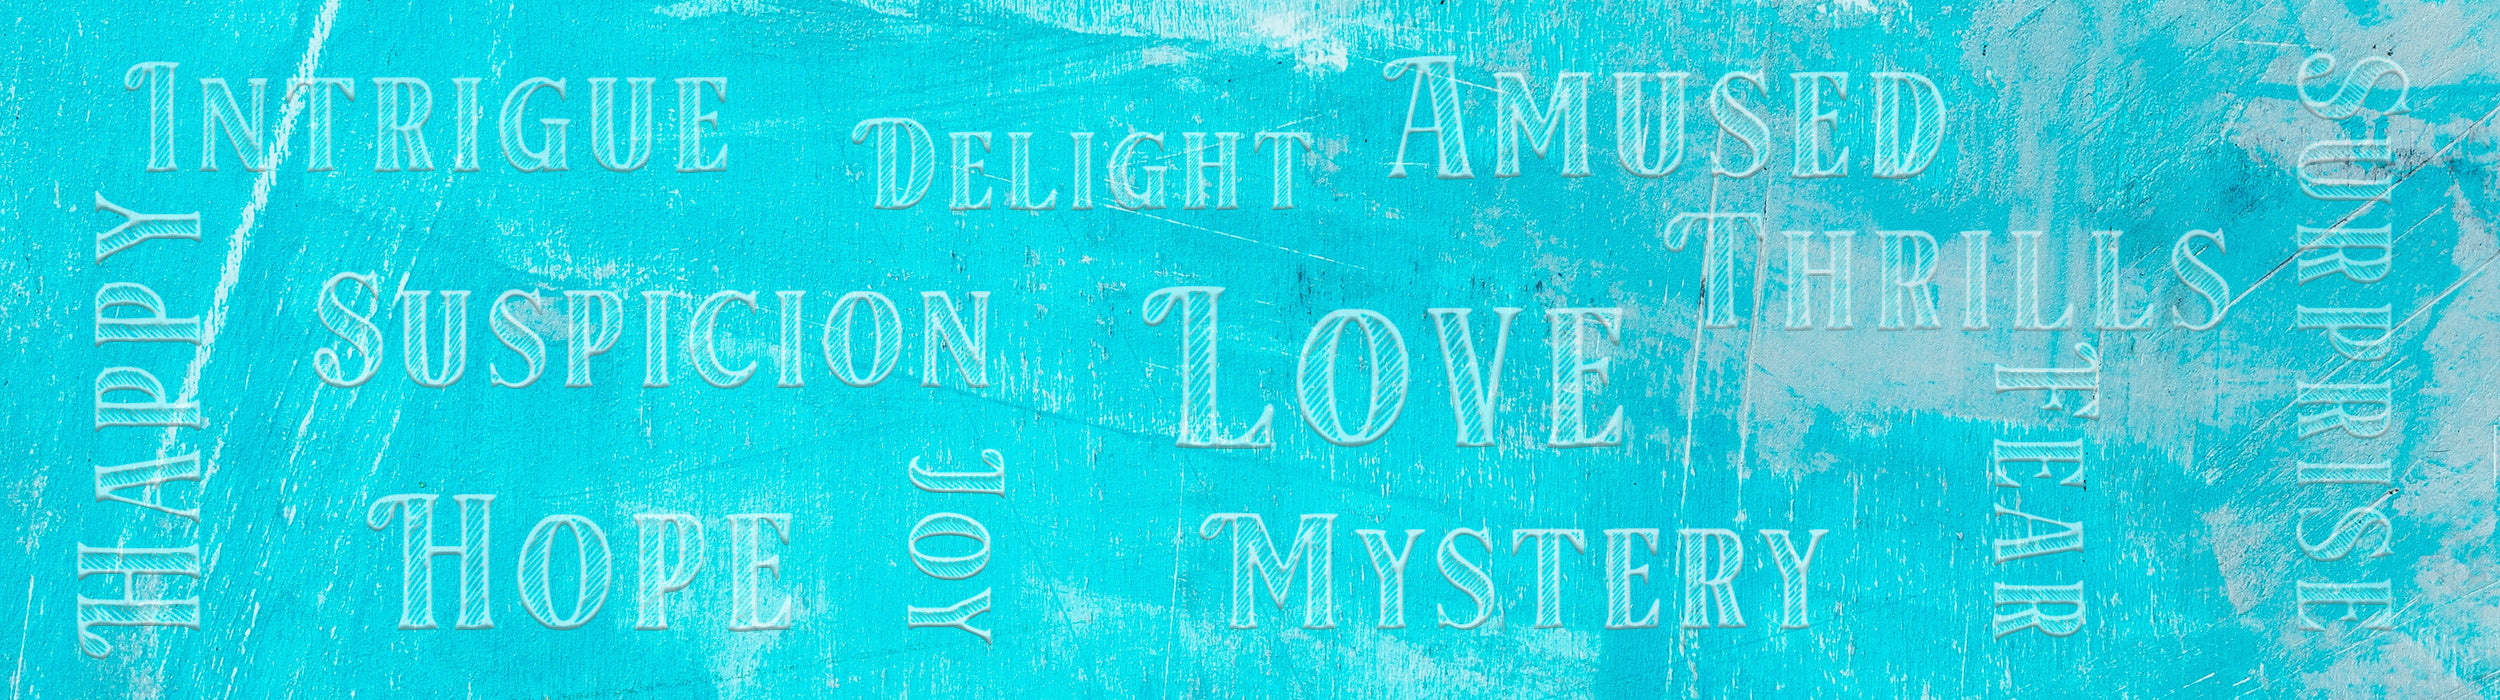 Intrigue
Delight
Amused
Surprise
Happy
Thrills
Suspicion
Love
Fear
Joy
Hope
Mystery